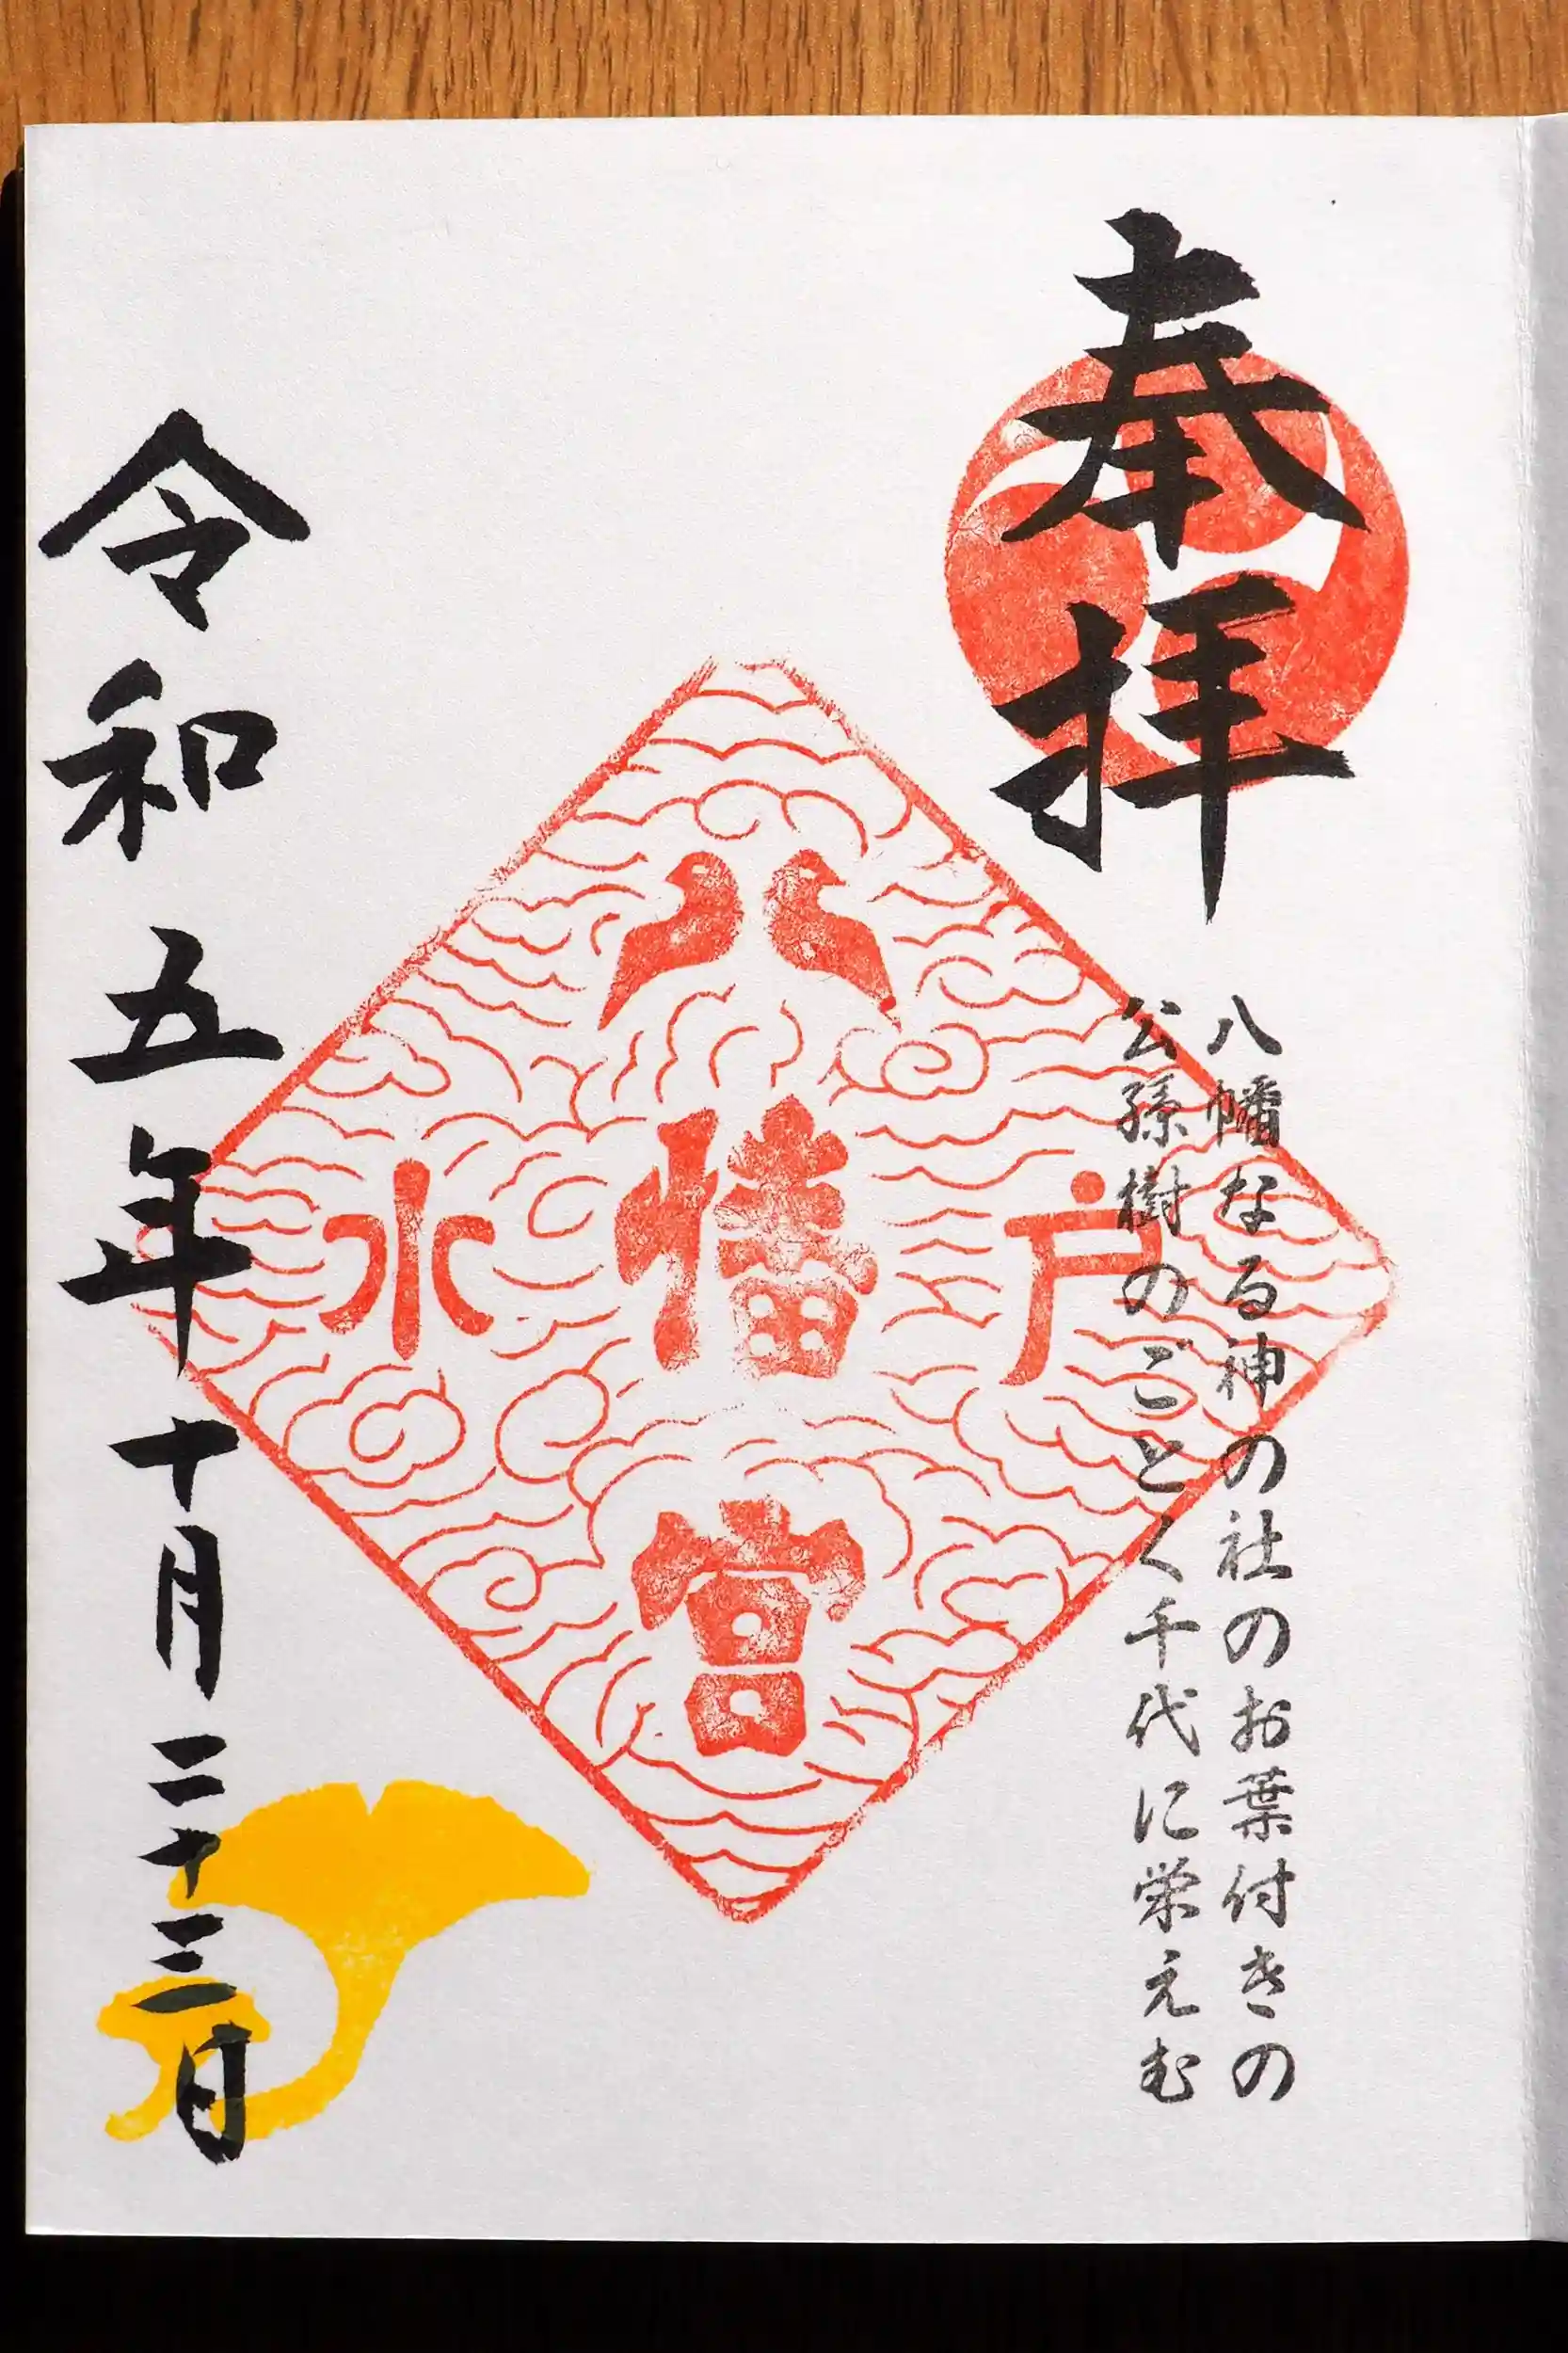 奉拝
八幡なる神の社のお葉付きの
公孫樹のごとく千代に栄えむ
水戸
幡宮
令和五年十月二十三日